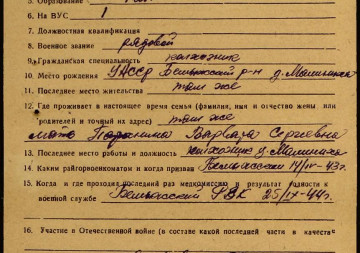 5. Образование
6. На ВУС 1
7. Должностная квалификация
8. Военное звание рядовой
9. Гражданская специальность колхозник
10. Место рождения УАССР р-н д.
11. Последнее место жительства там же
12. Где проживает в настоящее время семья (фамилия, имя и отчество жены или
родителей и точный их адрес) там же
мать Варвара Сергеевна
13. Последнее место работы и должность колхозник д.
14. Каким райгорвоенкоматом и когда призван 14/IV-43г.
15. Когда и где проходил последний раз медкомиссию и результат годности к
военной службе РВК 25/IX-44г.
16. Участие в Отечественной войне (в составе какой последней части в качестве